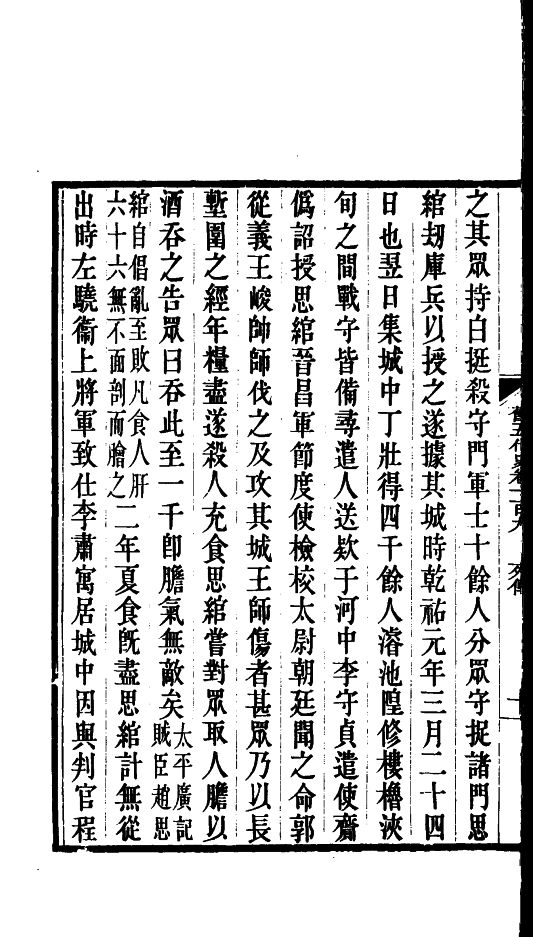 之其眾持白挺殺守門軍士十餘人分眾守捉諸門思
綰刼庫兵以授之遂據其城時乾祐元年三月二十四
日也翌日集城中丁壯得四千餘人濬池隍修樓櫓浹
旬之間戰守皆備尋遣人送欵于河中李守貞遣使齎
僞詔授思綰晉昌軍節度使檢校太尉朝廷聞之命郭
從義王峻帥師伐之及攻其城王師傷者甚眾乃以長
塹圍之經年糧盡遂殺人充食思綰嘗對眾取人膽以
酒吞之告眾曰吞此至一千卽膽氣無敵矣太平廣記賊臣趙思
綰自倡亂至敗凡食人肝六十六無不面剖而膾之二年夏食旣盡思綰計無從
出時左驍衞上將軍致仕李肅寓居城中因與判官程
舊五代史卷一百九 列傳 十一